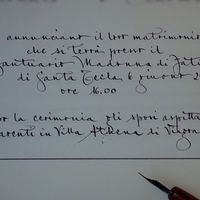 annunciano il loro matrimonio
che si terrà presso il
Santuario Madonna di Fati
di Santa Tecla, 6 giugno 2
ore 16.00
la cerimonia gli sposi aspetta
parenti in Villa Athena di